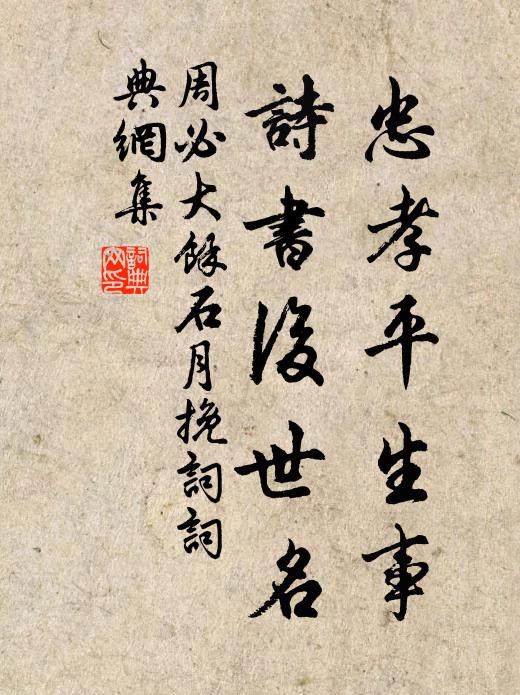 忠孝平生事
詩書後世名
周必大餘石月挽詞詞
典網集
詞典網印